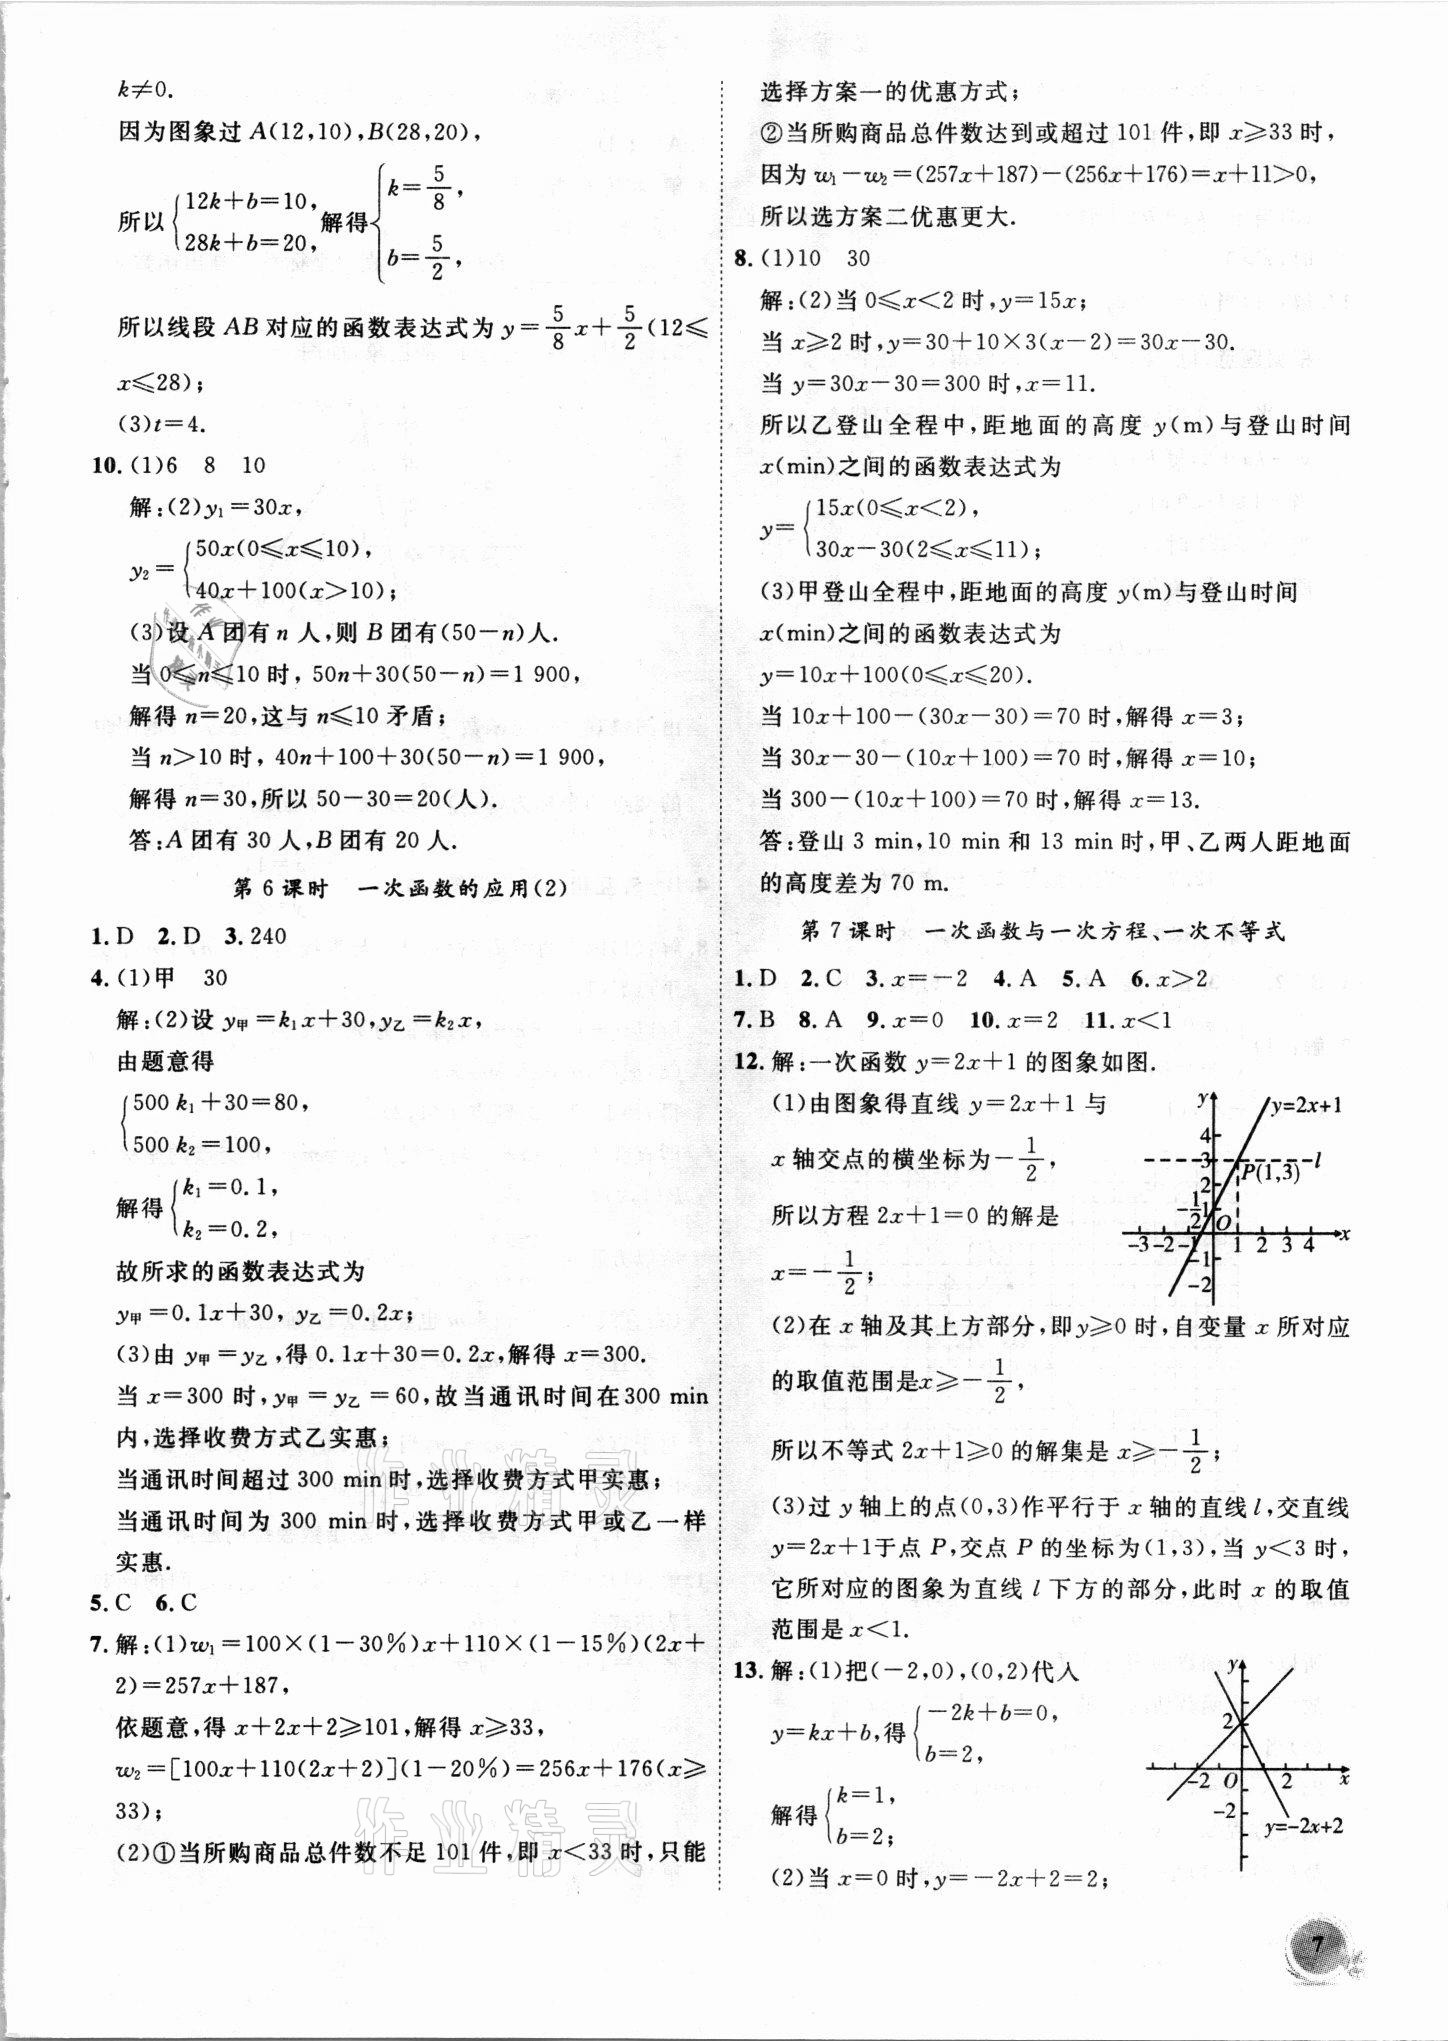 k≠0.
因为图象过 A(12,10),B(28,20),
所以{12k+b=10, 28k+b=20, 解得{k=5/8, b=5/2,
所以线段 AB 对应的函数表达式为 y=5/8x+5/2(12≤
x≤28);
(3)t=4.
10.(1)6 8 10
解:(2)y₁=30x,
y₂={50x(0≤x≤10), 40x+100(x>10);
(3)设 A 团有 n 人,则 B 团有(50-n)人.
当 0≤n≤10 时,50n+30(50-n)=1 900,
解得 n=20,这与 n≤10 矛盾;
当 n>10 时,40n+100+30(50-n)=1 900,
解得 n=30,所以 50-30=20(人).
答:A 团有 30 人,B 团有 20 人.
第 6 课时 一次函数的应用(2)
1.D 2.D 3.240
4.(1)甲 30
解:(2)设 y甲=k₁x+30,y乙=k₂x,
由题意得
{500 k₁+30=80,
500 k₂=100,
解得{k₁=0.1, k₂=0.2,
故所求的函数表达式为
y甲=0.1x+30, y乙=0.2x;
(3)由 y甲=y乙,得 0.1x+30=0.2x,解得 x=300.
当 x=300 时,y甲=y乙=60,故当通讯时间在300 min
内,选择收费方式乙实惠;
当通讯时间超过 300 min时,选择收费方式甲实惠;
当通讯时间为 300 min 时,选择收费方式甲或乙一样
实惠.
5.C 6.C
7.解:(1)w₁=100×(1-30%)x+110×(1-15%)(2x+
2)=257x+187,
依题意,得 x+2x+2≥101,解得 x≥33,
w₂=[100x+110(2x+2)](1-20%)=256x+176(x≥
33);
(2)①当所购商品总件数不足 101 件,即 x<33 时,只能
选择方案一的优惠方式;
②当所购商品总件数达到或超过 101 件,即 x≥33 时,
因为 w₁-w₂=(257x+187)-(256x+176)=x+11>0,
所以选方案二优惠更大.
8.(1)10 30
解:(2)当 0≤x<2 时,y=15x;
当 x≥2 时,y=30+10×3(x-2)=30x-30.
当 y=30x-30=300 时,x=11.
所以乙登山全程中,距地面的高度 y(m)与登山时间
x(min)之间的函数表达式为
y={15x(0≤x<2), 30x-30(2≤x≤11);
(3)甲登山全程中,距地面的高度 y(m)与登山时间
x(min)之间的函数表达式为
y=10x+100(0≤x≤20).
当 10x+100-(30x-30)=70 时,解得 x=3;
当 30x-30-(10x+100)=70 时,解得 x=10;
当 300-(10x+100)=70 时,解得 x=13.
答:登山 3 min,10 min 和 13 min 时,甲、乙两人距地面
的高度差为 70 m.
第 7 课时 一次函数与一次方程、一次不等式
1.D 2.C 3.x=-2 4.A 5.A 6.x>2
7.B 8.A 9.x=0 10.x=2 11.x<1
12.解:一次函数 y=2x+1 的图象如图.
(1)由图象得直线 y=2x+1 与
x 轴交点的横坐标为-1/2,
所以方程 2x+1=0 的解是
x=-1/2;
y
y=2x+1
4
3
l
P(1,3)
2
-1/2
1
O
-3 -2 -1 1 2 3 4 x
-1
-2
(2)在 x 轴及其上方部分,即y≥0 时,自变量 x 所对应
的取值范围是x≥-1/2,
所以不等式 2x+1≥0 的解集是 x≥-1/2;
(3)过 y 轴上的点(0,3)作平行于 x 轴的直线 l,交直线
y=2x+1于点 P,交点 P 的坐标为(1,3),当 y<3 时,
它所对应的图象为直线 l 下方的部分,此时 x 的取值
范围是 x<1.
13.解:(1)把(-2,0),(0,2)代入
y=kx+b,得{-2k+b=0, b=2,
解得{k=1, b=2;
(2)当 x=0 时,y=-2x+2=2;
y
2
-2 O 2 x
-2
y=-2x+2
作业精灵
作业精灵
作业精灵
7